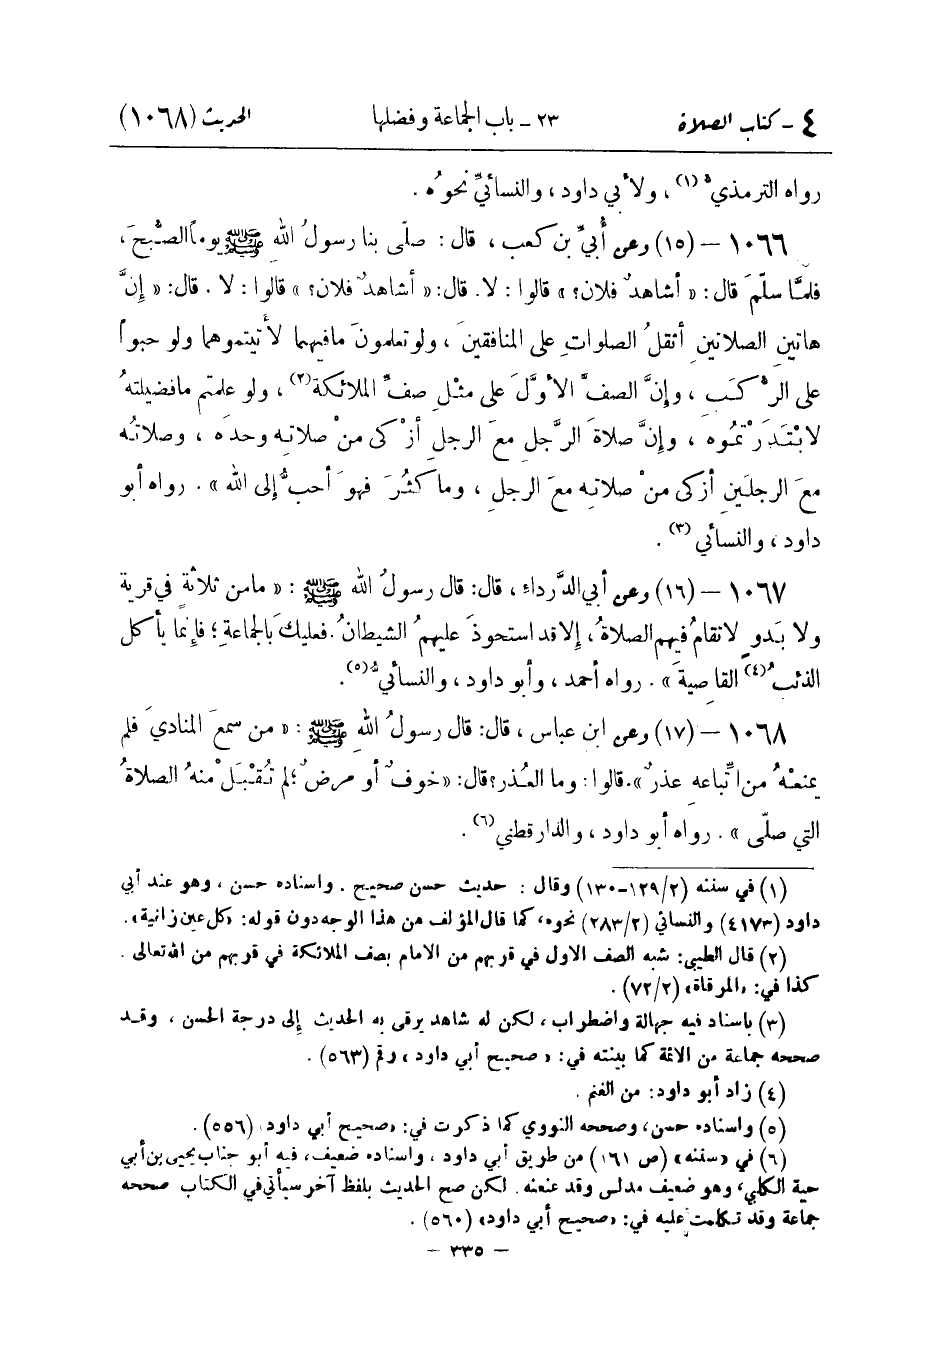 ٤ - كتاب الصلاة ٢٣ - باب الجماعة وفضلها الحديث (١٠٦٨)
رواه الترمذيُّ(١) ، ولأبي داود ، والنسائيِّ نحوُه .
١٠٦٦ – (١٥) وعن أُبيِّ بن كعب ، قال : صلّى بنا رسولُ اللهِ ﷺ يوماً الصُّبحَ ،
فلمَّا سلّمَ قال : « أشاهدٌ فلان؟ » قالوا : لا . قال: « أشاهدٌ فلان؟ » قالوا : لا . قال: « إنَّ
هاتينِ الصلاتينِ أثقلُ الصلواتِ على المنافقينَ ، ولو تعلمونَ ما فيهما لأتيتموهما ولو حبواً
على الرُّكَبِ ، وإنَّ الصفَّ الأوَّلَ على مثلِ صفِّ الملائكة(٢) ، ولو علمتم ما فضيلتهُ
لابْتَدَرْتموُه ، وإنَّ صلاةَ الرَّجلِ معَ الرجلِ أزْكى منْ صلاتهِ وحدَه ، وصلاتُه
معَ الرجلَينِ أزكى منْ صلاتهِ معَ الرجلِ ، وما كثُرَ فهوَ أحبُّ إلى الله » . رواه أبو
داود ، والنسائي(٣) .
١٠٦٧ – (١٦) وعن أبي الدَّرداءِ ، قال: قال رسولُ الله ﷺ : « ما من ثلاثةٍ في قريةٍ
ولا بَدوٍ لا تقامُ فيهم الصلاةُ ، إلا قد استحوذَ عليهمُ الشيطانُ . فعليكَ بالجماعةِ ؛ فإنما يأكل
الذئبُ(٤) القاصيةَ » . رواه أحمد ، وأبو داود ، والنسائيُّ(٥).
١٠٦٨ – (١٧) وعن ابن عباس ، قال: قال رسولُ اللهِ ﷺ : « من سمعَ المناديَ فلم
يمنعْهُ من اتِّباعه عذرٌ ». قالوا : وما العُذر؟ قال: «خوفٌ أو مرضٌ ؛ لم تُقْبَلْ منهُ الصلاةُ
التي صلّى » . رواه أبو داود ، والدارقطني(٦) .
(١) في سننه (١٢٩/٢-١٣٠) وقال : حديث حسن صحيح . واسناده حسن ، وهو عند أبي
داود (٤١٧٣) والنسائي (٢٨٣/٢) نحوه، كما قال المؤلف من هذا الوجه دون قوله: «كل عين زانية» .
(٢) قال الطيبي: شبه الصف الاول في قربهم من الامام بصف الملائكة في قربهم من الله تعالى .
كذا في: «المرقاة» (٧٢/٢) .
(٣) باسناد فيه جهالة واضطراب ، لكن له شاهد يرقى به الحديث إلى درجة الحسن ، وقد
صححه جماعة من الائمة كما بينته في: « صحيح أبي داود » رقم (٥٦٣) .
(٤) زاد أبو داود: من الغنم .
(٥) واسناده حسن، وصححه النووي كما ذكرت في: «صحيح أبي داود» (٥٥٦) .
(٦) في «سننه» (ص ١٦١) من طريق أبي داود ، واسناده ضعيف، فيه أبو جناب يحيى بن أبي
حية الكلبي، وهو ضعيف مدلس وقد عنعنه. لكن صح الحديث بلفظ آخر سيأتي في الكتاب صححه
جماعة وقد تكلمت عليه في: «صحيح أبي داود» (٥٦٠) .
– ٣٣٥ –